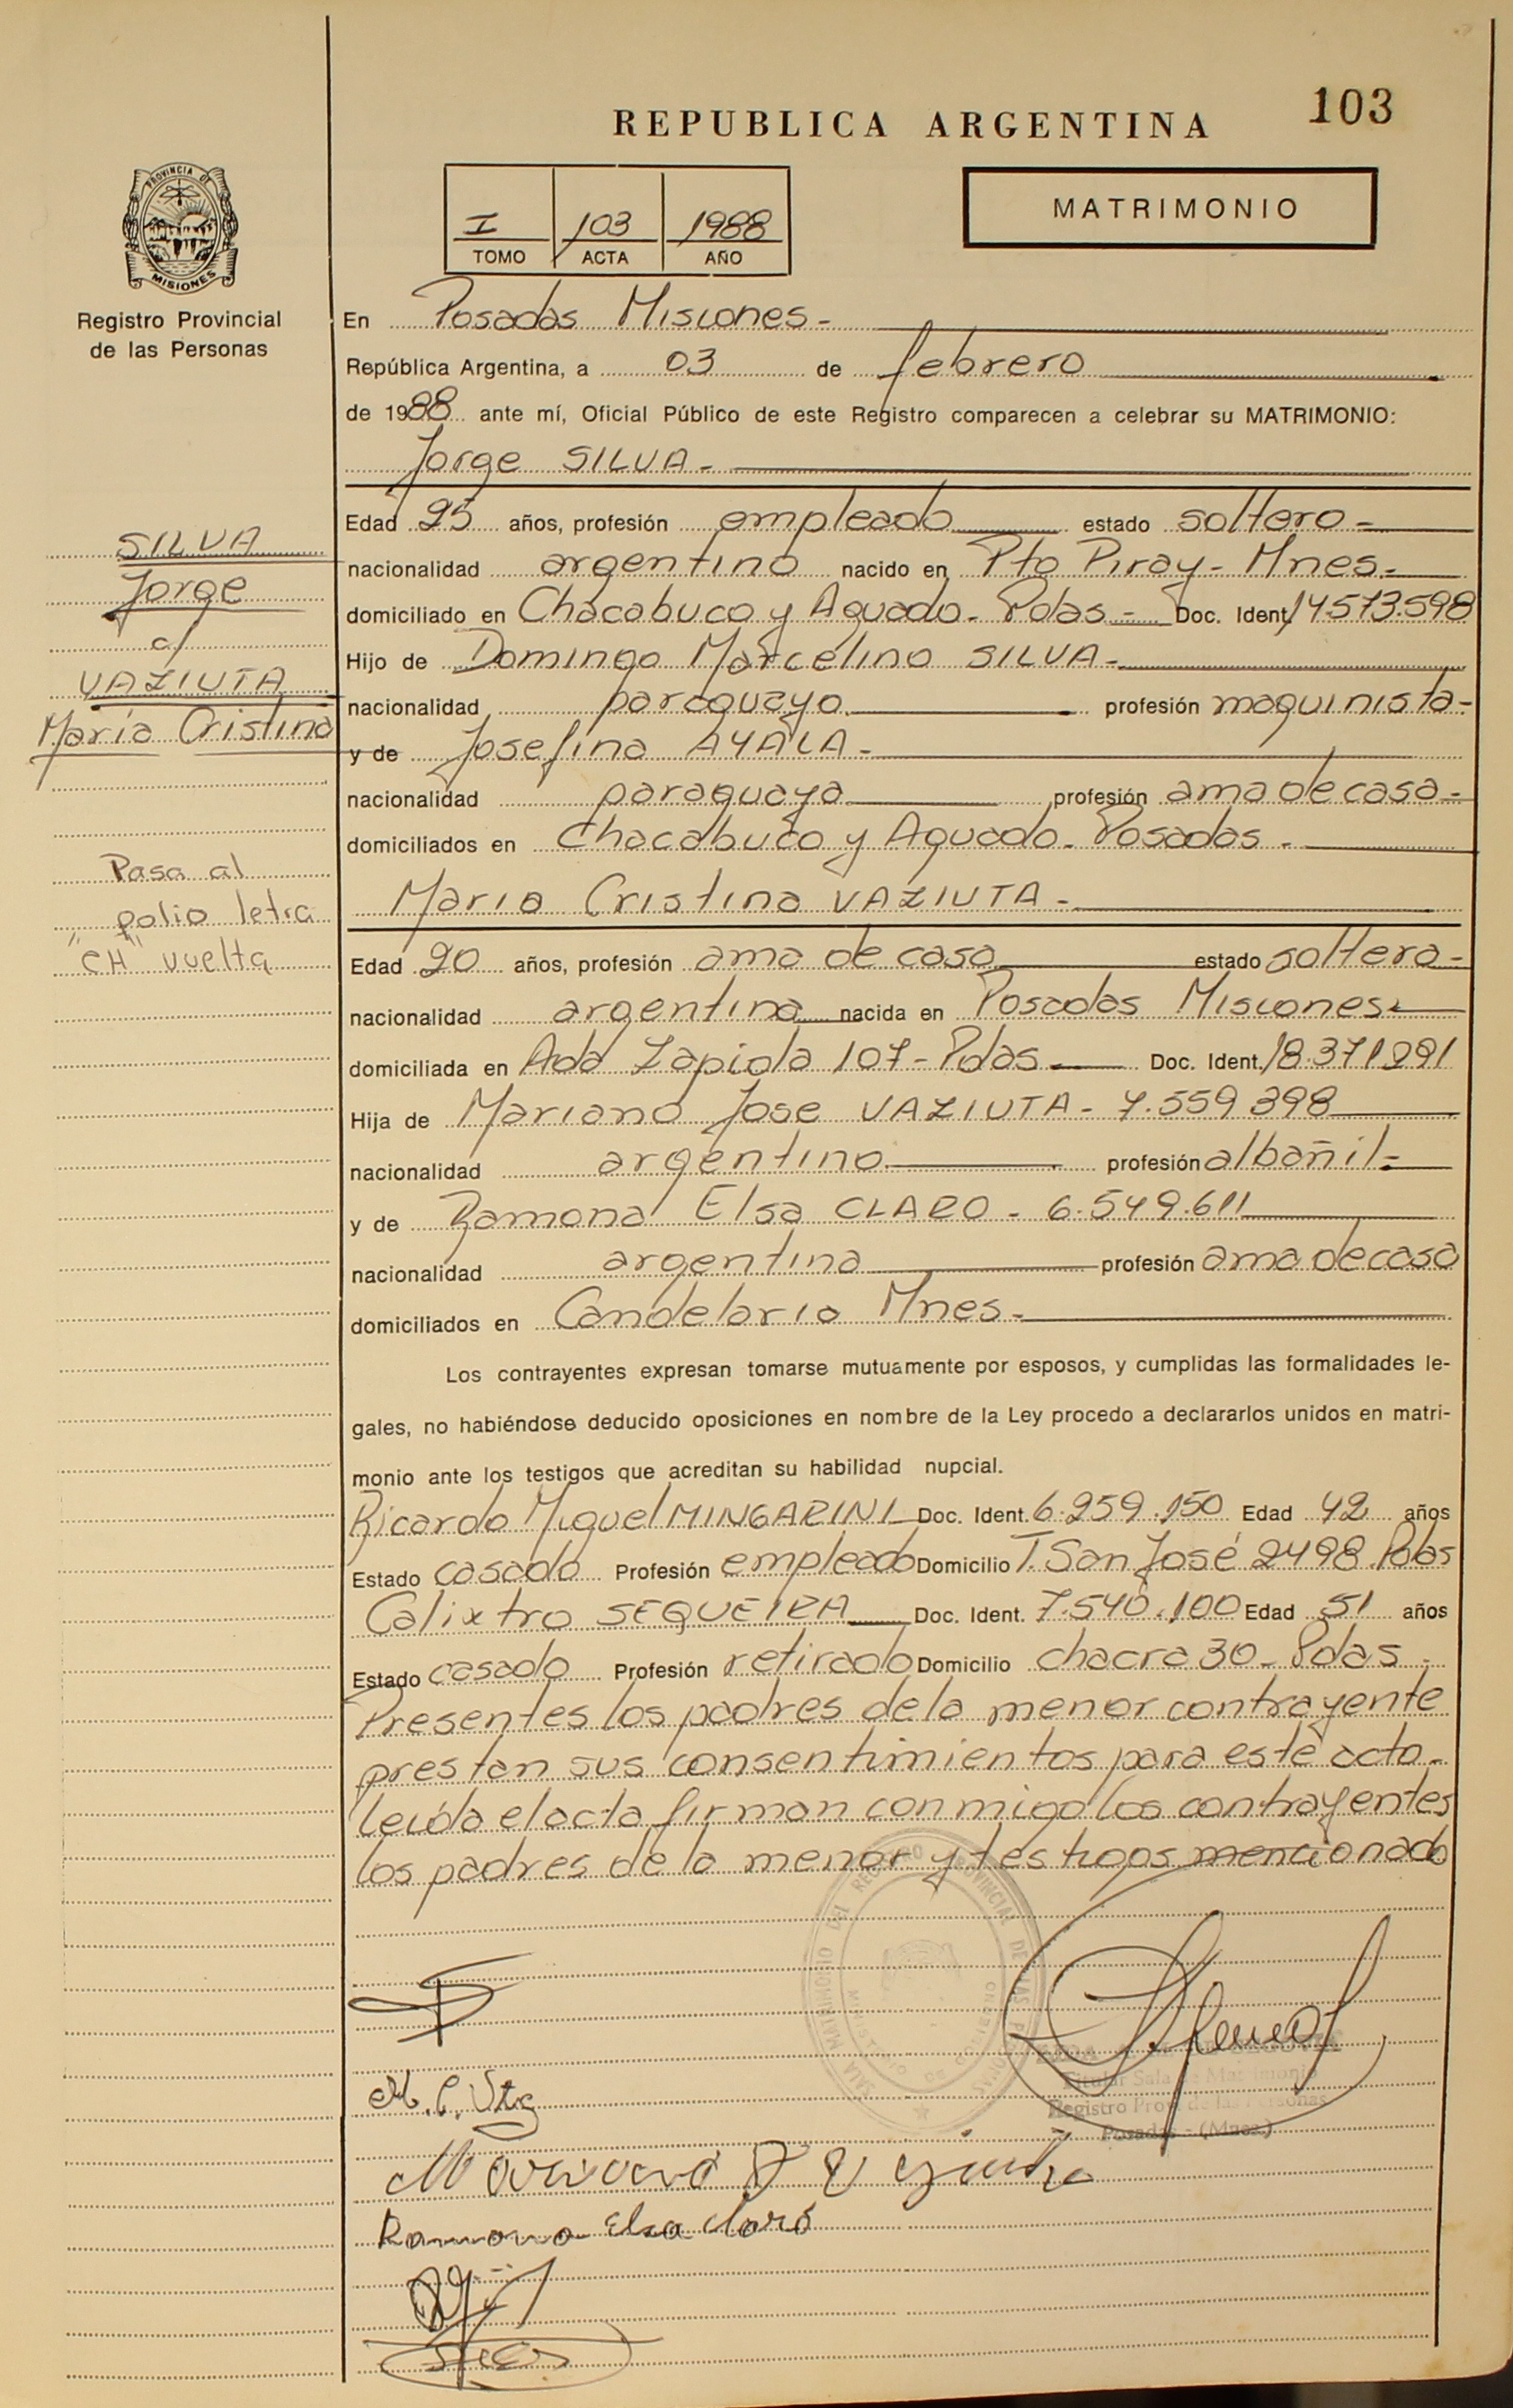 103
REPUBLICA ARGENTINA
PROVINCIA DE
MISIONES
Registro Provincial
de las Personas
I 103 1988
TOMO ACTA AÑO
MATRIMONIO
En Posadas Misiones-
República Argentina, a 03 de febrero
de 1988 ante mí, Oficial Público de este Registro comparecen a celebrar su MATRIMONIO:
Jorge SILVA-
Edad 25 años, profesión empleado estado soltero-
nacionalidad argentino nacido en Pto Piray- Mnes-
domiciliado en Chacabuco y Aguado- Pdas- Doc. Ident. 14573.598
Hijo de Domingo Marcelino SILVA-
nacionalidad paraguayo profesión maquinista-
y de Josefina AYALA-
nacionalidad paraguaya profesión ama de casa-
domiciliados en Chacabuco y Aguado- Posadas-
SILVA
Jorge
c/
VAZIUTA
María Cristina
Pasa al
polio letra
"CH" vuelta
Maria Cristina VAZIUTA-
Edad 20 años, profesión ama de casa estado soltera-
nacionalidad argentina nacida en Posadas Misiones-
domiciliada en Ada Zapiola 107- Pdas- Doc. Ident. 18.371291
Hija de Mariano Jose VAZIUTA- 7.559 398
nacionalidad argentino profesión albañil-
y de Ramona Elsa CLARO- 6.549.611
nacionalidad argentina profesión ama de casa
domiciliados en Candelaria Mnes-
Los contrayentes expresan tomarse mutuamente por esposos, y cumplidas las formalidades le-
gales, no habiéndose deducido oposiciones en nombre de la Ley procedo a declararlos unidos en matri-
monio ante los testigos que acreditan su habilidad nupcial.
Ricardo Miguel MINGARINI Doc. Ident. 6.259.150 Edad 42 años
Estado casado Profesión empleado Domicilio T. San José 2498 Pdas
Calixtro SEQUEIRA Doc. Ident. 7.540.100 Edad 51 años
Estado casado Profesión retirado Domicilio chacra 30- Pdas-
Presentes los padres de la menor contrayente
prestan sus consentimientos para este acto-
leida el acta firman conmigo los contrayentes
los padres de la menor y testigos mencionado
SALA MATRIMONIO DEL REGISTRO PROVINCIAL DE LAS PERSONAS
MINISTERIO DE GOBIERNO
Titular Sala de Matrimonio
Registro Prov. de las Personas
Posadas - (Mnes.)
Ramona Elsa Claro